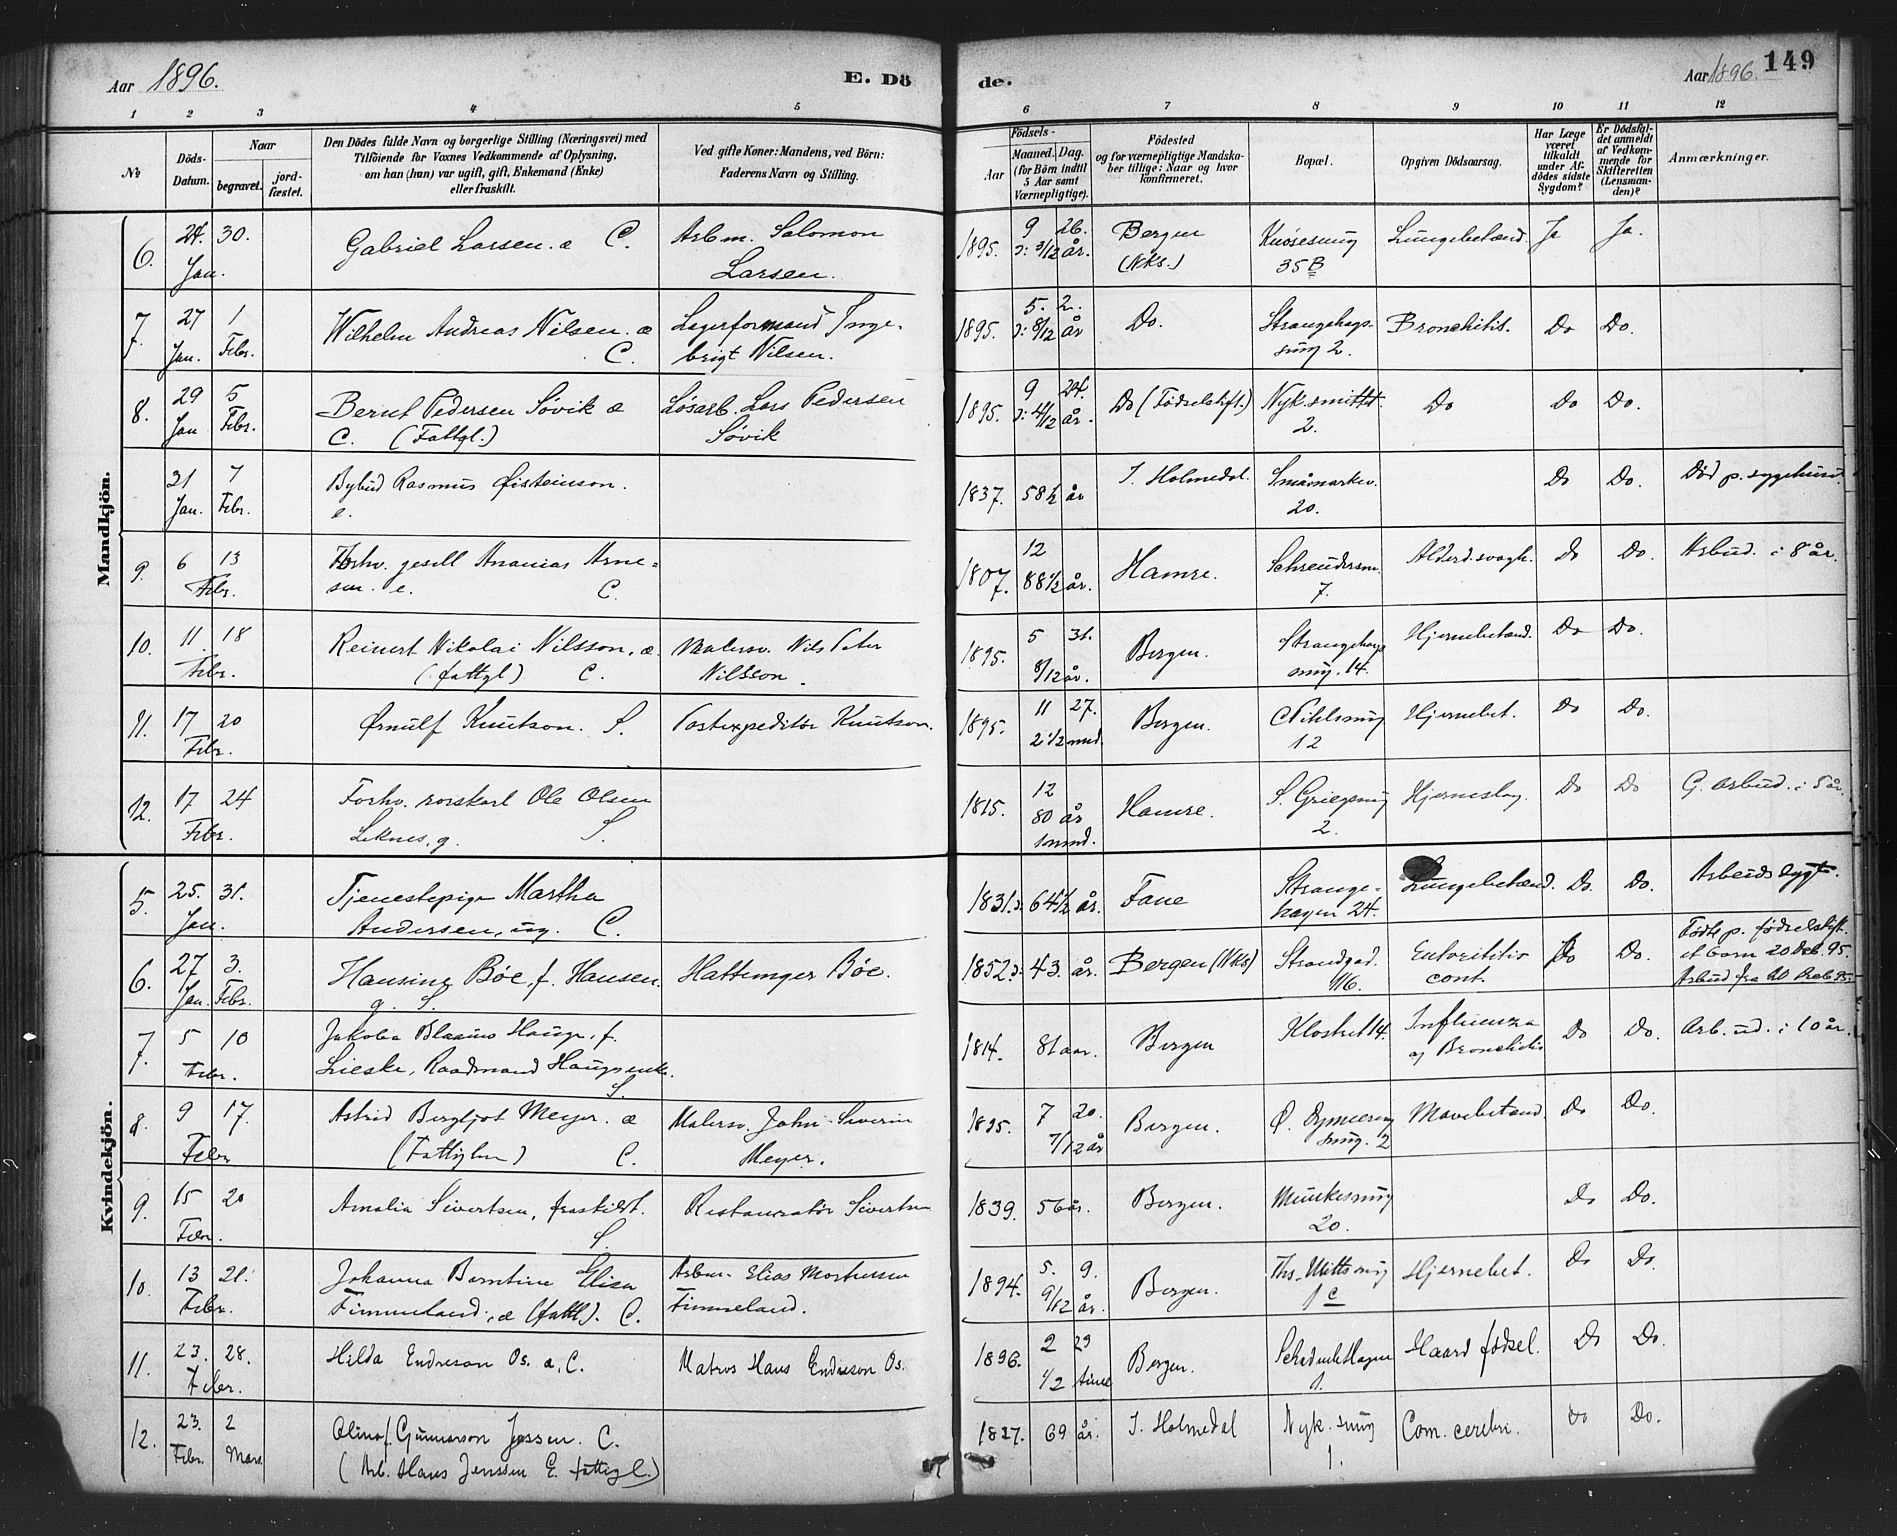 Aar 1896.
E. Dö
de.
Aar 1896.
149
1 2 3 4 5 6 7 8 9 10 11 12
No
Döds-Datum.
Naar
begravet.
jord-fæstet.
Den Dödes fulde Navn og borgerlige Stilling (Næringsvei) med
Tilföiende for Voxnes Vedkommende af Oplysning,
om han (hun) var ugift, gift, Enkemand (Enke)
eller fraskilt.
Ved gifte Koner: Mandens, ved Börn:
Faderens Navn og Stilling.
Födsels-
Aar
Maaned. Dag.
(for Börn indtil
5 Aar samt
Værnepligtige).
Födested
og for værnepligtige Mandska-
ber tillige: Naar og hvor
konfirmeret.
Bopæl.
Opgiven Dödsaarsag.
Har Læge
været
tilkaldt
under Af-
dödes sidste
Sygdom?
Er Dödsfal-
det anmeldt
af Vedkom-
mende for
Skifteretten
(Lensman-
den)?
Anmærkninger.
Mandkjön.
6. 24. Jan. 30. Gabriel Larsen. æ C. Arbm. Salomon Larsen. 1895. 9 26. ɔ: 3/12 år. Bergen (Nks.) Knøsesmug 35 B Lungebetænd. Ja Ja.
7. 27 Jan. 1 Febr. Wilhelm Andreas Nilsen. æ C. Lagerformand Ingebrigt Nilsen. 1895. 5. 2. ɔ: 8/12 år Do. Strangehagsmug 2. Bronchitis. Do Do.
8. 29 Jan 5 Febr. Bernt Pedersen Søvik æ C. (Fattgl.) Løsarb. Lars Pedersen Søvik 1895. 9 24. ɔ: 4/12 år. Do (Fødselstift.) Nyk.smitt 2. Do Do Do.
31 Jan. 7 Febr. Bybud Rasmus Øisteinson. e. 1837. 58½ år I. Holmedal. Småmarkev. 20. Do Do. Död p. sygehuset.
9. 6 13 Febr. Forhv. gesell Ananias Arnesen. e. C. 1807. 12 88½ år. Hamre. Schreudersm. 7. Alderd.svagh. Do Do. Arbud. i 8 år.
10. 11. 18 Febr. Reinert Nikolai Nilsson, æ. (fattgl) C. Malersv. Nils Peter Nilsson. 1895. 5 31. 8/12 år. Bergen. Strangehagsmug. 14. Hjernebetænd. Do Do.
11. 17 20 Febr. Ørnulf Knutson. S. Postexpeditør Knutson. 1895. 11 27. 2½ mnd. Bergen. C Pihlsmug 12 Hjernebet. Do Do.
12. 17 24 Febr. Forhv. rorskarl Ole Olsen Leknes, g. S. 1815. 12 80 år 1 mnd. Hamre. S. Griegsmug 2. Hjerneslag. Do Do G. arbud. i 5 år.
Kvindekjön.
5. 25. 31. Jan. Tjenestepige Martha Andersen, ug. C. 1831. ɔ: 64½ år. Fane Strangehagen 24. Lungebetænd. Do. Do. Arbeidsdygt.
6. 27 Jan. 3. Febr. Hansine Böe, f. Hansen. g. S. Hattemager Böe. 1852. ɔ: 43. år. Bergen (Nks) Strandgad. 116. Do Do. Födte p. födselstift. et barn 20 Deb. 95.
7. 5 10 Febr. Jakoba Blaauw Hauge, f. Lieske, Raadmand Hauges enke. S. 1814. 81 aar. Bergen Klostret 14. Influenza og Bronchitis Do Do. Arb. ud. i 10 år.
8. 9 17. Febr Astrid Bergljot Meyer. æ (Fattiglm) C. Malersv. John Severin Meyer. 1895. 7 20. 7/12 år Bergen. Ø. smug. 2 Mavebetænd. Do Do.
9. 15 20 Febr. Amalia Sivertsen, fraskilt. S. Restauratör Sivertsen 1839. 56 år. Bergen. Munkesmug 20. Do Do.
10. 13 21. Febr. Johanna Berntine Elisa Fimmeland. æ (fattl). C. Arbm. Elias Mortensen Fimmeland. 1894. 5. 9. 9/12 år. Bergen. Ths. Wittsmug 1 c Hjernebet. Do Do.
11. 23. 28. Febr. Hilda Endreson Os. æ, C. Matros Hans Endreson Os. 1896. 2 23 ½ time Bergen. 1. Haard fødsel. Do Do.
12. 23. Febr. 2 Mars Olina f. Gunnarson Jessen. C. (Arb. Hans Jenssen E. fattigl.) 1827. 69 år. I. Holmedal Nyk. smug 1. Com. cerebri. Do Do.